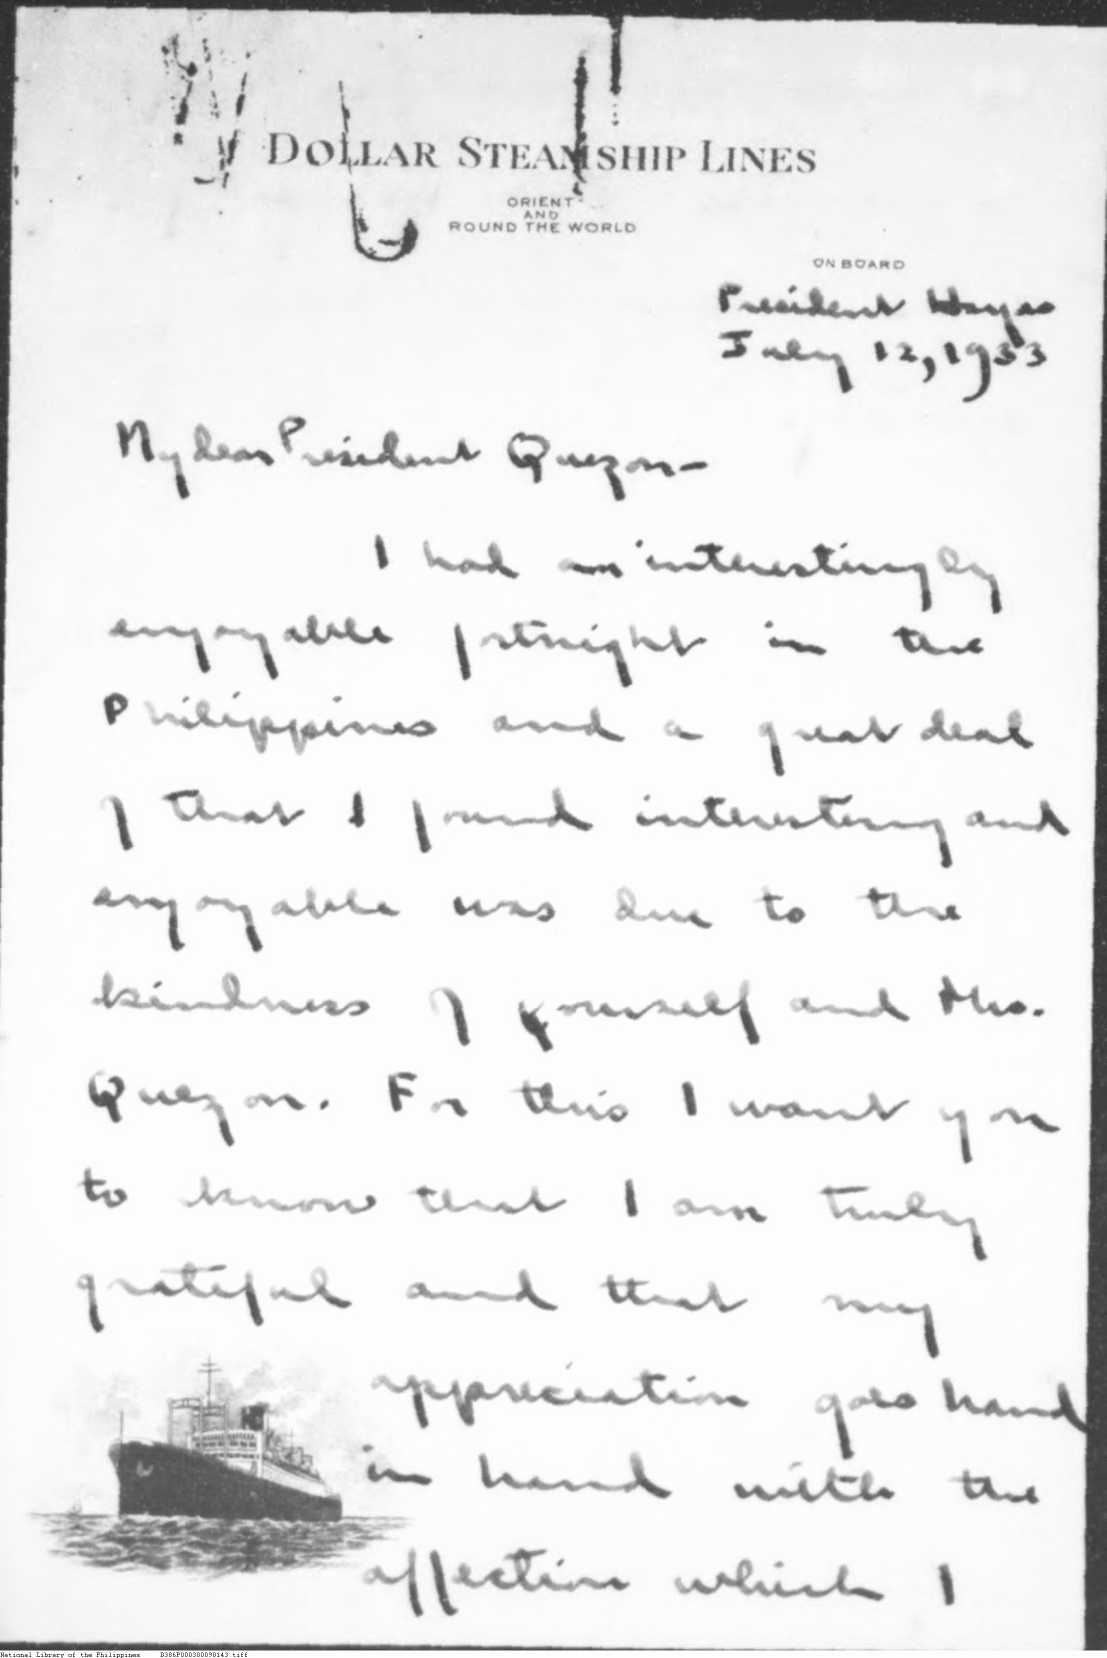 DOLLAR STEAMSHIP LINES
ORIENT
AND
ROUND THE WORLD
ON BOARD
President Hayes
July 12, 1933
My dear President Quezon—
I had an interestingly
enjoyable fortnight in the
Philippines and a great deal
of that I found interesting and
enjoyable was due to the
kindness of yourself and Mrs.
Quezon. For this I want you
to know that I am truly
grateful and that my
appreciation goes hand
in hand with the
affection which I
National Library of the Philippines B386P000300090143.tiff